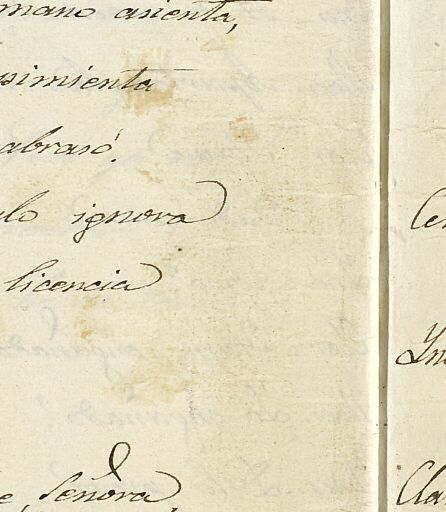 mano asienta,
pimienta
abrasó.
lo ignora
licencia
Señora,